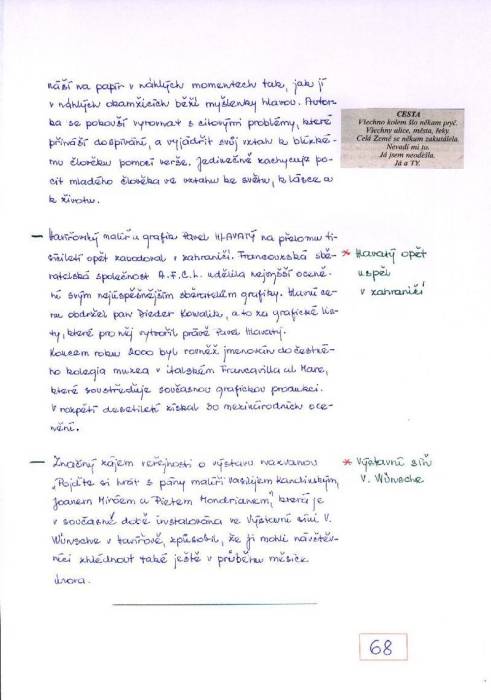 náší na papír v náhlých momentech tak, jak jí
v náhlých okamžicích běží myšlenky hlavou. Autor-
ka se pokouší vyrovnat s citovými problémy, které
přináší dospívání, a vyjádřit svůj vztah k blízké-
mu člověku pomocí verše. Jedinečně zachycuje po-
cit mladého člověka ve vztahu ke světu, k lásce a
k životu.
CESTA
Všechno kolem šlo někam pryč.
Všechny ulice, města, řeky.
Celá Země se někam zakutálela.
Nevadí mi to.
Já jsem neodešla.
Já a TY.
— Havířovský malíř a grafik Pavel HLAVATÝ na přelomu ti-
síciletí opět zabodoval v zahraničí. Francouzská sbě-
ratelská společnost A.F.C.L. udělila nejvyšší oceně-
ní svým nejúspěšnějším sběratelům grafiky. Hlavní ce-
nu obdržel pan Dieder Kowalik, a to za grafické lis-
ty, které pro něj vytvořil právě Pavel Hlavatý.
Koncem roku 2000 byl rovněž jmenován do čestné-
ho kolegia muzea v italském Francavilla al Mare,
které soustřeďuje současnou grafickou produkci.
V rozpětí desetiletí získal 30 mezinárodních oce-
nění.
* Hlavatý opět
uspěl
v zahraničí
— Značný zájem veřejnosti o výstavu nazvanou
"Pojďte si hrát s pány malíři Vasilijem Kandinským,
Joanem Miróem a Pietem Mondrianem," která je
v současné době instalována ve Výstavní síni V.
Wünsche v Havířově, způsobil, že ji mohli návštěv-
níci zhlédnout také ještě v průběhu měsíce
února.
* Výstavní síň
V. Wünsche
68